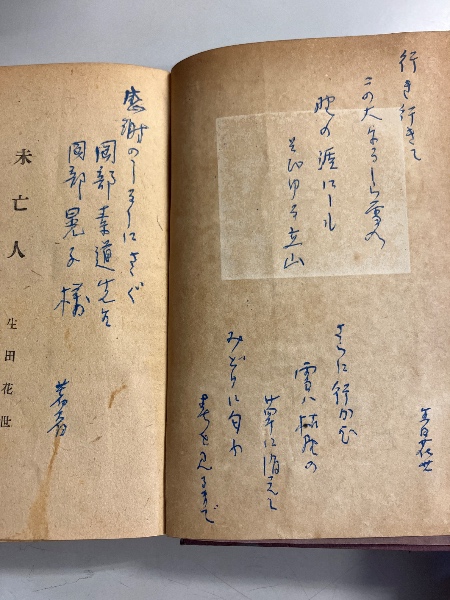 行き行きて
この大
野の涯に
そびゆる立山
さらに行かむ
雪は枯野の
草に消えて
みどりに匂ふ
春を見るまで
花世
感謝のしるしにさゝぐ
岡部素道先生
岡部晃子様
著者
未亡人
生田花世